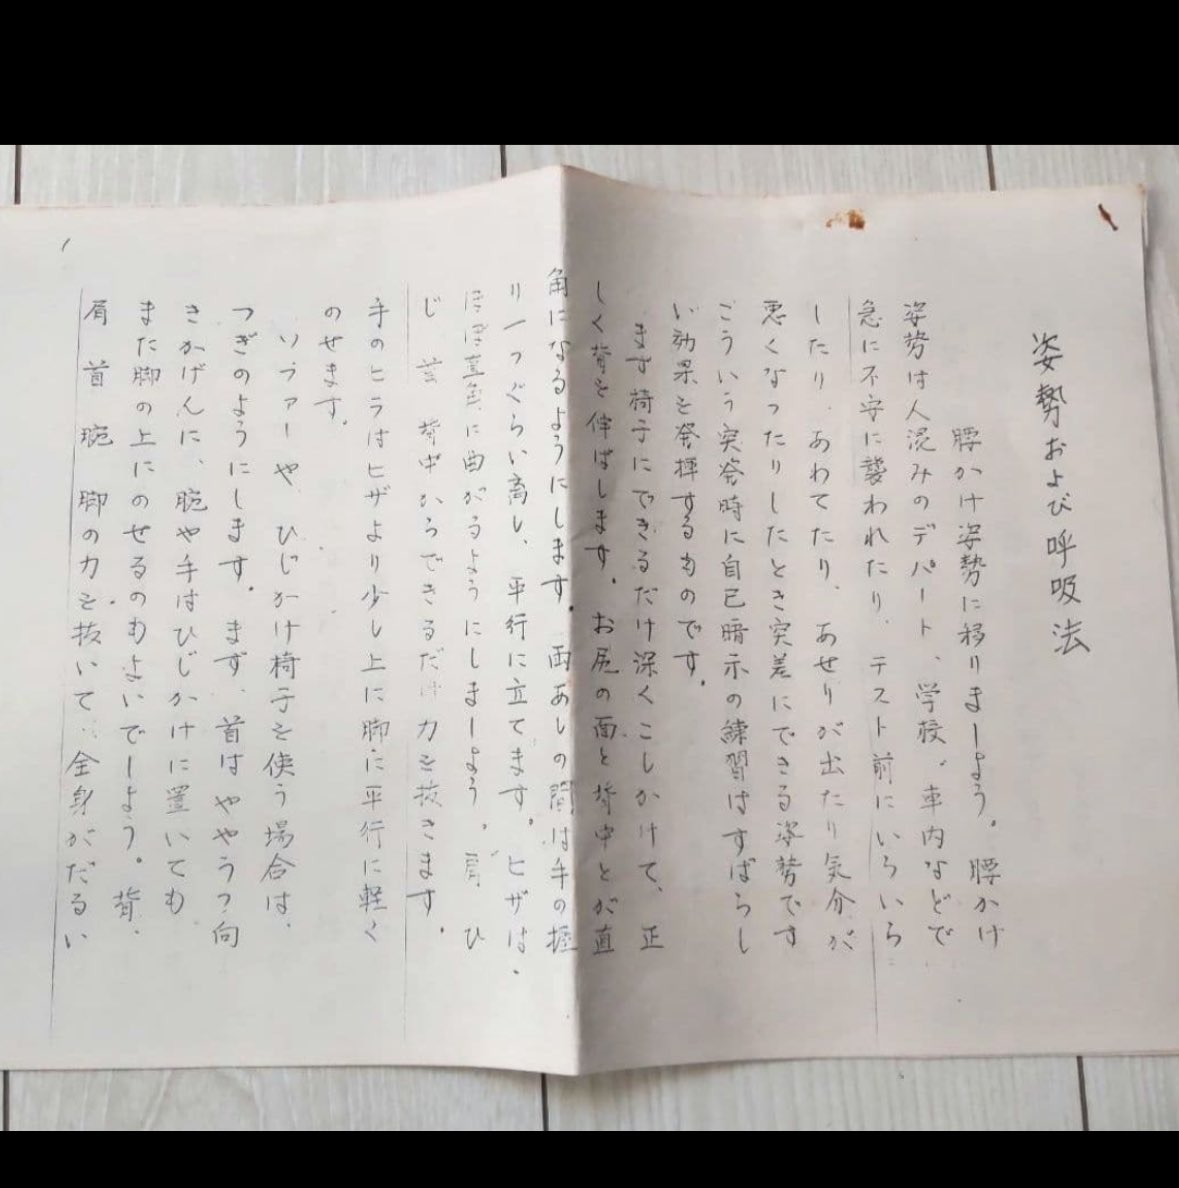 姿勢および呼吸法
腰かけ姿勢に移りましょう。腰かけ
姿勢は人混みのデパート、学校、車内などで
急に不安に襲われたり、テスト前にいらいら
したり、あわてたり、あせりが出たり気分が
悪くなったりしたとき実差にできる姿勢です
こういう突発時に自己暗示の練習はすばらし
い効果を発揮するものです。
まず椅子にできるだけ深くこしかけて、正
しく背を伸ばします。お尻の面と背中とが直
角になるようにします。両あしの間は手の握
り一つぐらい離し、平行に立てます。ヒザは、
ほぼ直角に曲がるようにしましょう。肩 ひ
じ 首 背中からできるだけ力を抜きます。
手のヒラはヒザより少し上に脚に平行に軽く
のせます。
ソファーや ひじかけ椅子を使う場合は、
つぎのようにします。まず、首はややうつ向
きかげんに、腕や手はひじかけに置いても
また脚の上にのせるのもよいでしょう。背、
肩 首 腕 脚の力を抜いて、全身がだるい